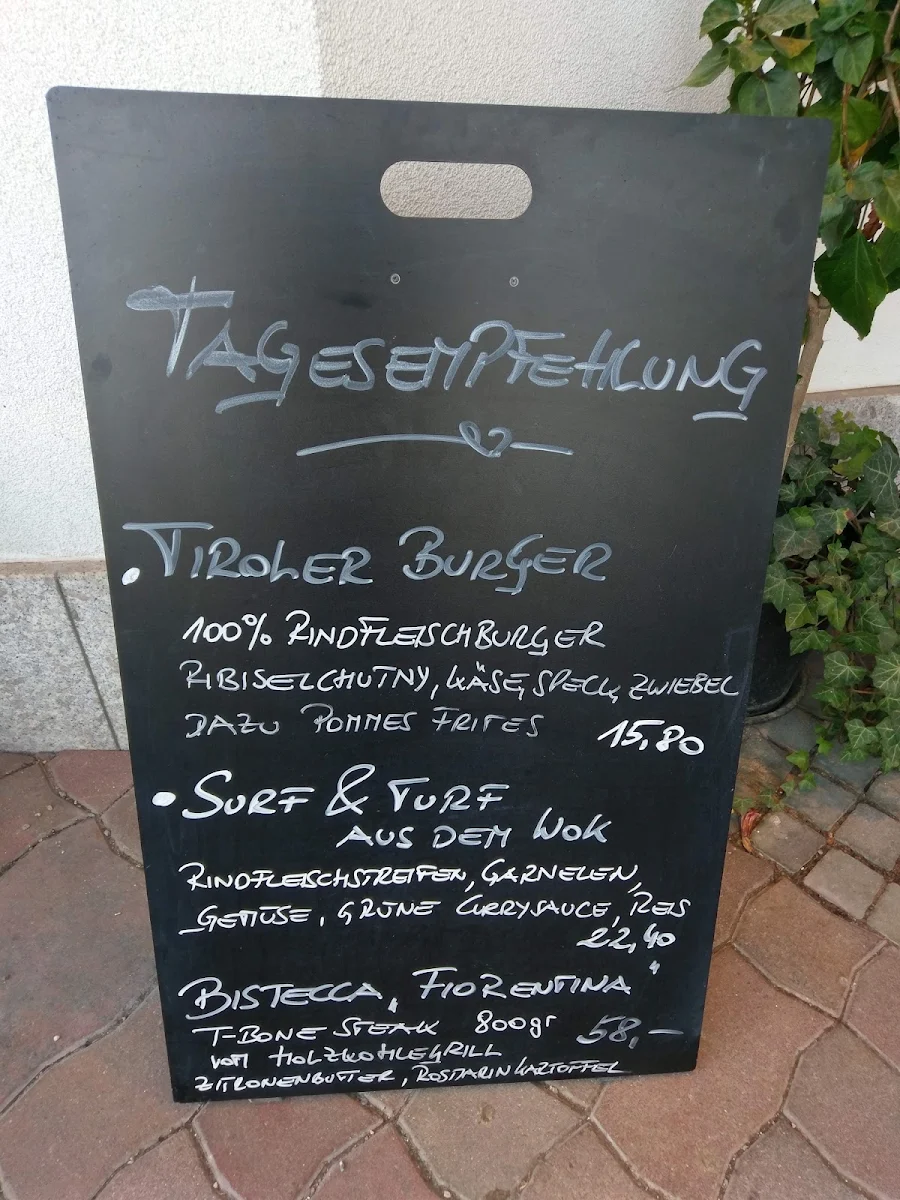 TAGESEMPFEHLUNG
• TIROLER BURGER
100% RINDFLEISCHBURGER
RIBISELCHUTNY, KÄSE, SPECK, ZWIEBEL
DAZU POMMES FRITES 15,80
• SURF & TURF
AUS DEM WOK
RINDFLEISCHSTREIFEN, GARNELEN,
GEMÜSE, GRÜNE CURRYSAUCE, REIS
22,40
BISTECCA „FIORENTINA“
T-BONE STEAK 800gr 58,—
VOM HOLZKOHLEGRILL
ZITRONENBUTTER, ROSMARINKARTOFFEL